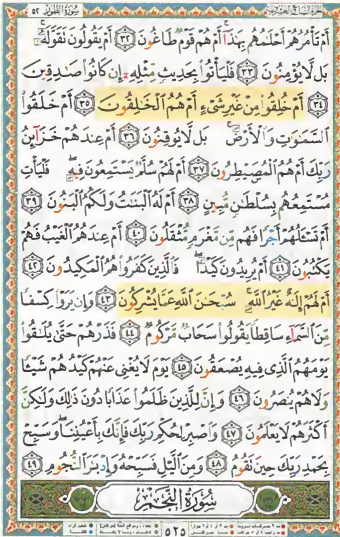 سُورَةُ الطُّورِ ٥٢
أَمْ تَأْمُرُهُمْ أَحْلَٰمُهُم بِهَٰذَآ أَمْ هُمْ قَوْمٌ طَاغُونَ ٣٢ أَمْ يَقُولُونَ تَقَوَّلَهُۥ
بَل لَّا يُؤْمِنُونَ ٣٣ فَلْيَأْتُوا۟ بِحَدِيثٍ مِّثْلِهِۦٓ إِن كَانُوا۟ صَٰدِقِينَ
٣٤ أَمْ خُلِقُوا۟ مِنْ غَيْرِ شَىْءٍ أَمْ هُمُ ٱلْخَٰلِقُونَ ٣٥ أَمْ خَلَقُوا۟
ٱلسَّمَٰوَٰتِ وَٱلْأَرْضَ بَل لَّا يُوقِنُونَ ٣٦ أَمْ عِندَهُمْ خَزَآئِنُ
رَبِّكَ أَمْ هُمُ ٱلْمُصَۣيْطِرُونَ ٣٧ أَمْ لَهُمْ سُلَّمٌ يَسْتَمِعُونَ فِيهِ فَلْيَأْتِ
مُسْتَمِعُهُم بِسُلْطَٰنٍ مُّبِينٍ ٣٨ أَمْ لَهُ ٱلْبَنَٰتُ وَلَكُمُ ٱلْبَنُونَ ٣٩
أَمْ تَسْـَٔلُهُمْ أَجْرًا فَهُم مِّن مَّغْرَمٍ مُّثْقَلُونَ ٤٠ أَمْ عِندَهُمُ ٱلْغَيْبُ فَهُمْ
يَكْتُبُونَ ٤١ أَمْ يُرِيدُونَ كَيْدًا فَٱلَّذِينَ كَفَرُوا۟ هُمُ ٱلْمَكِيدُونَ ٤٢
أَمْ لَهُمْ إِلَٰهٌ غَيْرُ ٱللَّهِ سُبْحَٰنَ ٱللَّهِ عَمَّا يُشْرِكُونَ ٤٣ وَإِن يَرَوْا۟ كِسْفًا
مِّنَ ٱلسَّمَآءِ سَاقِطًا يَقُولُوا۟ سَحَابٌ مَّرْكُومٌ ٤٤ فَذَرْهُمْ حَتَّىٰ يُلَٰقُوا۟
يَوْمَهُمُ ٱلَّذِى فِيهِ يُصْعَقُونَ ٤٥ يَوْمَ لَا يُغْنِى عَنْهُمْ كَيْدُهُمْ شَيْـًٔا
وَلَا هُمْ يُنصَرُونَ ٤٦ وَإِنَّ لِلَّذِينَ ظَلَمُوا۟ عَذَابًا دُونَ ذَٰلِكَ وَلَٰكِنَّ
أَكْثَرَهُمْ لَا يَعْلَمُونَ ٤٧ وَٱصْبِرْ لِحُكْمِ رَبِّكَ فَإِنَّكَ بِأَعْيُنِنَا وَسَبِّحْ
بِحَمْدِ رَبِّكَ حِينَ تَقُومُ ٤٨ وَمِنَ ٱلَّيْلِ فَسَبِّحْهُ وَإِدْبَٰرَ ٱلنُّجُومِ ٤٩
سُورَةُ النَّجْمِ
٥٢٥